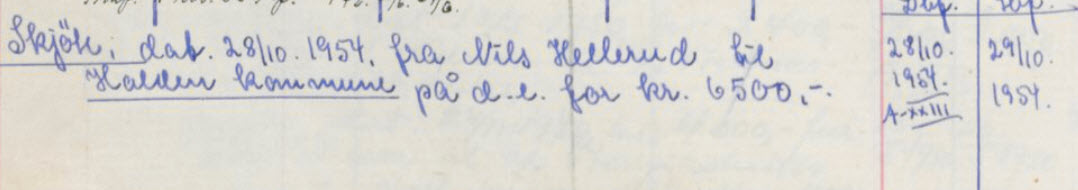 Dbf. Tbf.
Skjöte, dat. 28/10. 1954. fra Nils Hellerud til
Halden kommune på d.e. for kr. 6500,-.
28/10.
1954.
A-XXIII
29/10.
1954.